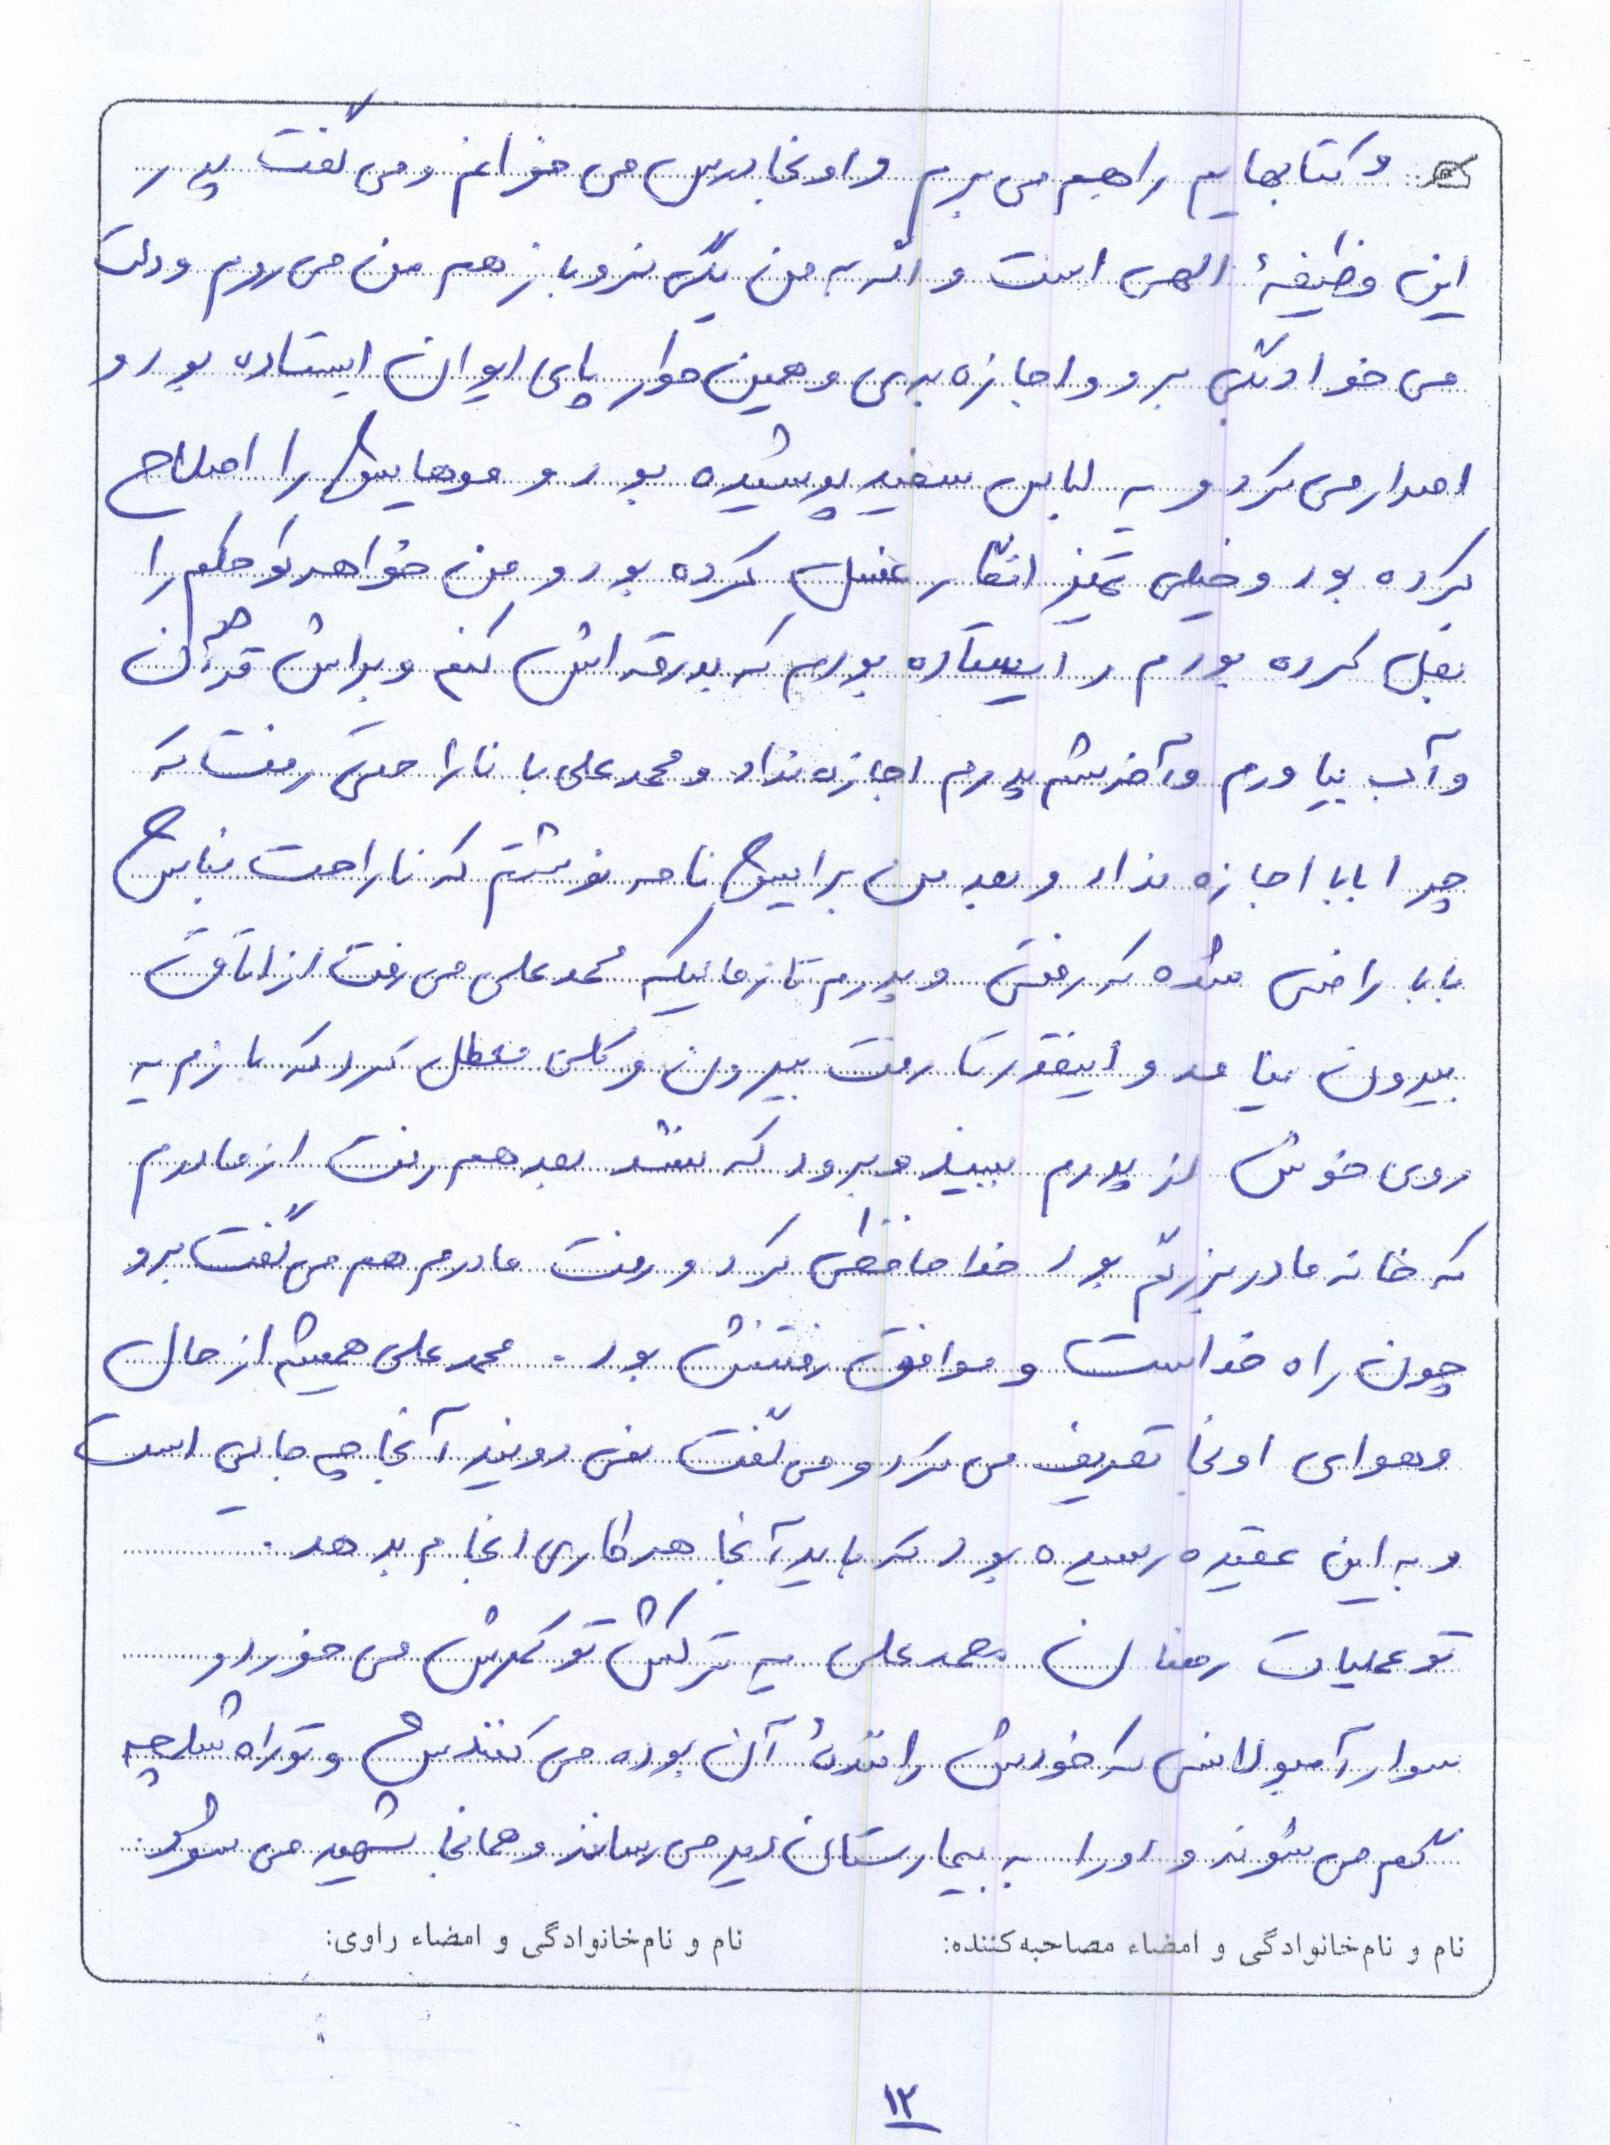 و کتابهایم راهم می برم و اونجا درس می خوانم و می گفت پدر
این وظیفهٔ الهی است و اگر به من بگی نرو باز هم من می روم و دلت
می خواد بگی برو و اجازه بدی و همین طور پای ایوان ایستاده بود و
اصرار می کرد و یه لباس سفید پوشیده بود و موهایش را اصلاح
کرده بود و خیلی تمیز انگار غسل کرده بود و من خواهر کوچکم را
بغل کرده بودم و ایستاده بودم که بدرقه اش کنم و براش قرآن
و آب بیاورم و آخرشم پدرم اجازه نداد و محمد علی با ناراحتی رفت که
چرا بابا اجازه نداد و بعد من برایش نامه نوشتم که ناراحت نباش
بابا راضی شده که رفتی و پدرم تا زمانیکه محمد علی می رفت از اتاق
بیرون نیامد و اینقدر تا رفت بیرون و کلی معطل کرد که بازم یه
روی خوش از پدرم ببیند و برود که نشد بعد هم رفت از مادرم
که خانه مادربزرگم بود خداحافظی کرد و رفت مادرم هم می گفت برو
چون راه خداست و موافق رفتنش بود . محمد علی همیشه از حال
و هوای اونجا تعریف می کرد و می گفت نمی دونید آنجا چه جایی است
و به این عقیده رسیده بود که باید آنجا هر کاری انجام بدهد .
تو عملیات رمضان محمد علی یه ترکش تو کمرش می خورد و
سوار آمبولانس که خودش رانندهٔ آن بوده می کنندش و تو راه شلمچه
گم می شوند و او را به بیمارستان دیر می رسانند و همانجا شهید می شود .
نام و نام‌خانوادگی و امضاء مصاحبه‌کننده: نام و نام‌خانوادگی و امضاء راوی:
۱۲